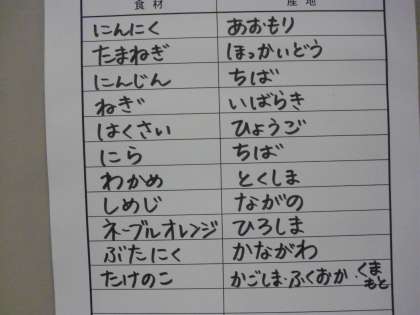 食材 産地
にんにく あおもり
たまねぎ ほっかいどう
にんじん ちば
ねぎ いばらき
はくさい ひょうご
にら ちば
わかめ とくしま
しめじ ながの
ネーブルオレンジ ひろしま
ぶたにく かながわ
たけのこ かごしま・ふくおか・くまもと